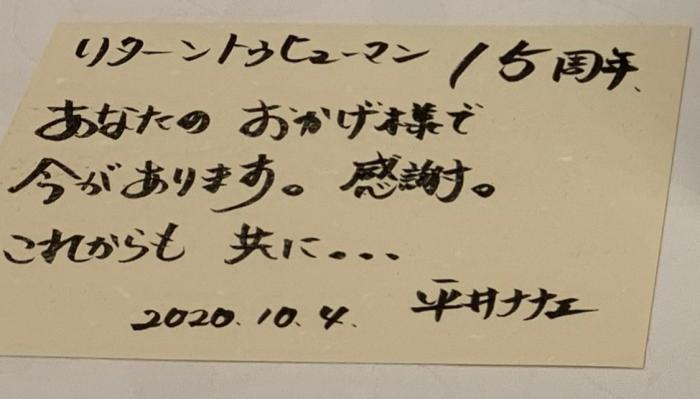 リターントゥヒューマン 15周年、
あなたの おかげ様で
今があります。 感謝。
これからも 共に...
2020.10.4. 平井ナナエ